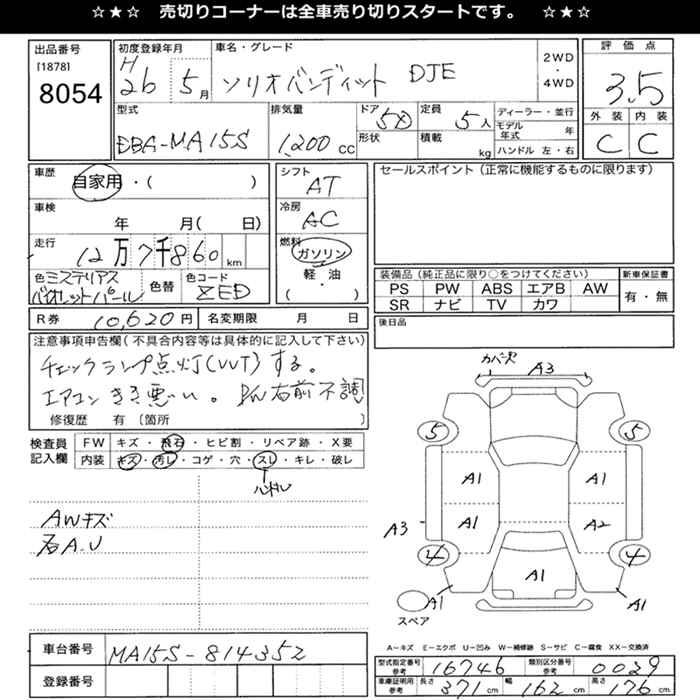 ☆★☆ 売切りコーナーは全車売り切りスタートです。 ☆★☆
出品番号
[1878]
8054
初度登録年月
H 26 5月
車名・グレード
ソリオバンディット DJE
2WD
・
4WD
評価点
3.5
外装 内装
C C
型式
DBA-MA15S
排気量
1,200 cc
ドア
5D
形状
定員
5人
積載
kg
ディーラー・並行
モデル年式 年
ハンドル 左・右
車歴
自家用・( )
車検
年 月( 日)
走行
12万7千860 km
色 ミステリアス
バイオレットパール
色替
色コード
ZED
シフト
AT
冷房
AC
燃料
ガソリン
軽・油
( ・ )
セールスポイント(正常に機能するものに限ります)
装備品(純正品に限り○をつけてください)
PS PW ABS エアB AW
SR ナビ TV カワ
新車保証書
有・無
後日品
R券 10,620円
名変期限 月 日
注意事項申告欄(不具合内容等は具体的に記入して下さい)
チェックランプ点灯(VVT)する。
エアコンきき悪い。P/W右前不調
修復歴 有〔箇所 〕
検査員
記入欄
FW キズ・飛石・ヒビ割・リペア跡・X要
内装 キズ・汚レ・コゲ・穴・スレ・キレ・破レ
ハンドル
AWキズ
石A.U
カバーズレ
A3
5 5
A1 A1
A3 A1 A2
4 4
A1
A1 A1
スペア
A-キズ E-エクボ U-凹み W-補修跡 S-サビ C-腐食 XX-交換済
車台番号 MA15S-814352
登録番号
型式指定番号
参考
16746
類別区分番号
参考
0039
車庫証明用
参考
長さ 371cm 幅 162cm 高さ 176cm